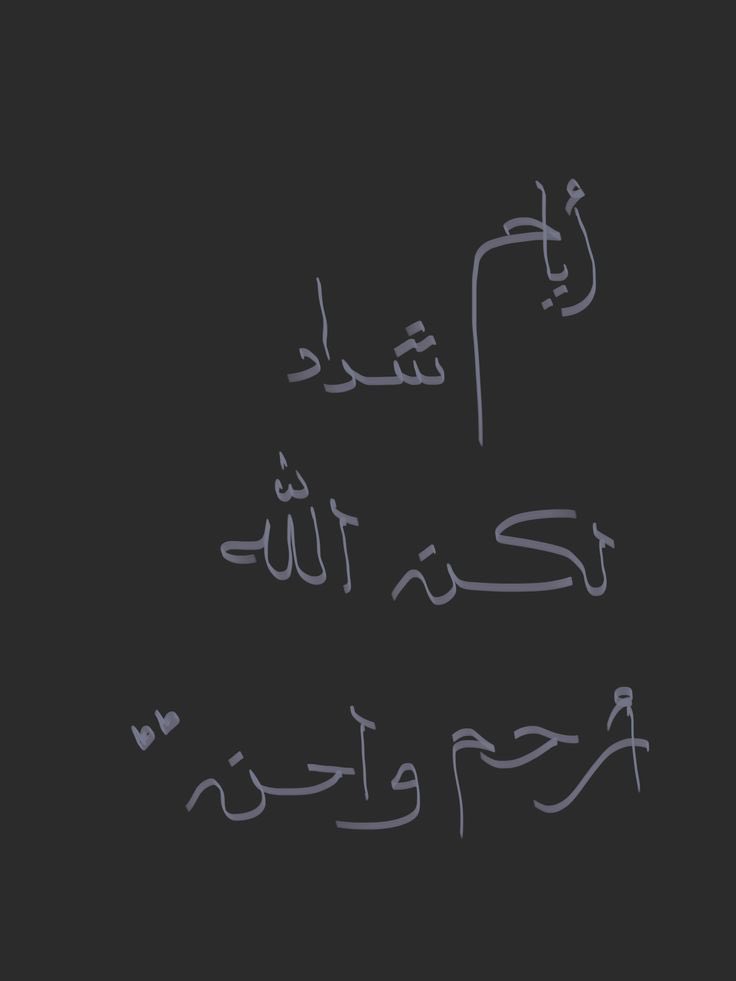 أيام شداد
لكن اللّٰه
أرحم واحن"